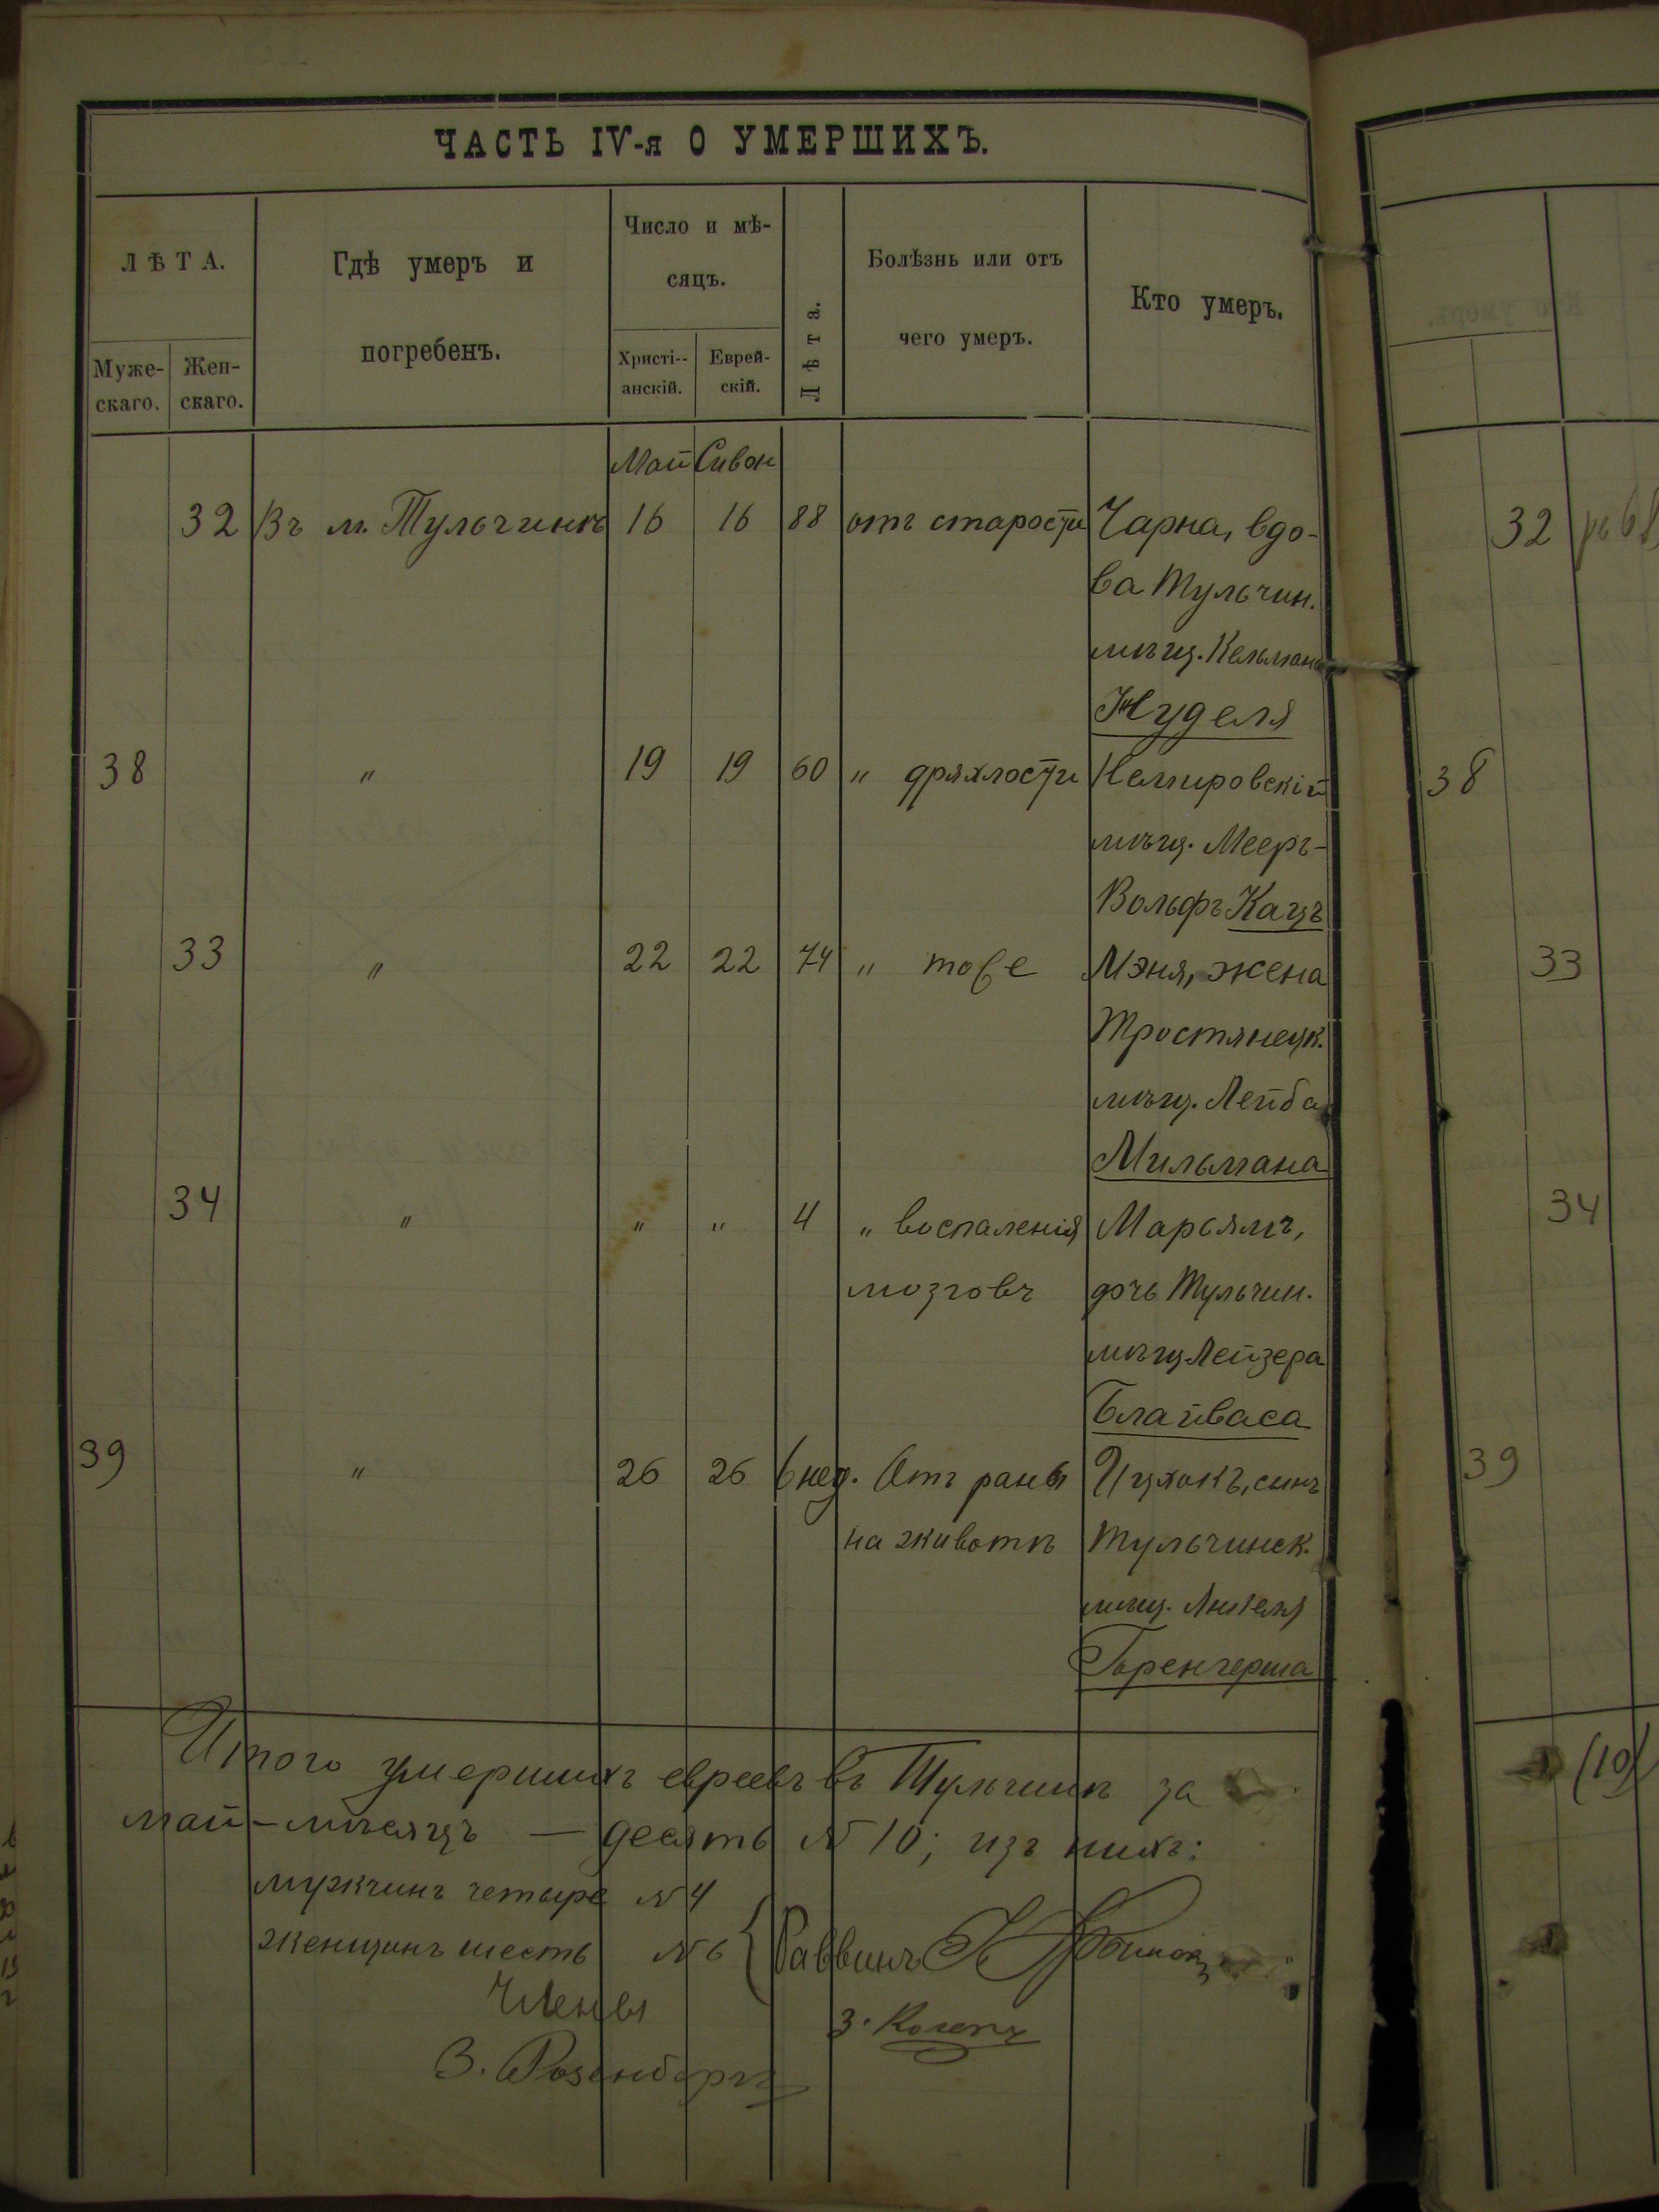 ЧАСТЬ IV-я О УМЕРШИХЪ.
ЛѢТА.
Муже-
скаго.
Жен-
скаго.
Гдѣ умеръ и
погребенъ.
Число и мѣ-
сяцъ.
Христі--
анскій.
Еврей-
скій.
Лѣта.
Болѣзнь или отъ
чего умеръ.
Кто умеръ.
Май Сивон
32 Въ м. Тульчинѣ 16 16 88 отъ старости Чарна, вдо-
ва Тульчин.
мѣщ. Кельмана
Нуделя
38 " 19 19 60 " дряхлости Немировскій
мѣщ. Мееръ-
Вольфъ Кацъ
33 " 22 22 74 " тоже Мэня, жена
Тростянецк.
мѣщ. Лейба
Мильмана
34 " " " 4 " воспаленія Марьямъ,
мозговъ дочь Тульчин.
мѣщ Лейзера
Блайваса
39 " 26 26 6 нед. Отъ раны Ицхокъ, сынъ
на животѣ Тульчинск.
мѣщ.
Горенгерша
Итого умершихъ евреевъ въ Тульчинѣ за
май-мѣсяцъ — десять N 10; изъ нихъ:
мужчинъ четыре N 4
женщинъ шесть N 6 { Раввинъ
Члены
З. Розенбергъ
32
38
33
34
39
(10)